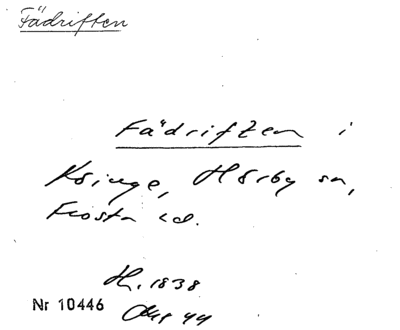 Fädriften
Fädriften i
Kringe, Hörby sn,
Frosta hd.
H. 1838
Nr 10446